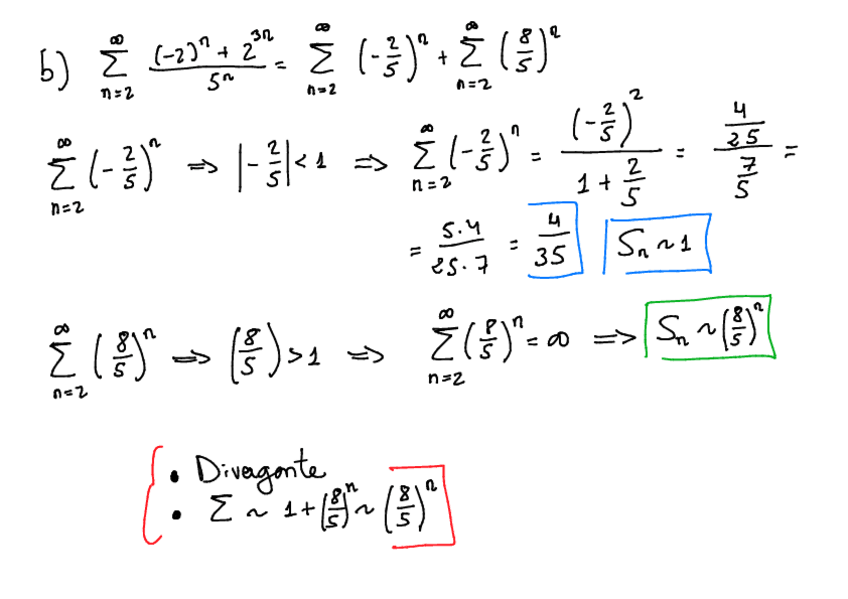 b) ∑_{n=2}^{∞} ((-2)^n + 2^{3n})/5^n = ∑_{n=2}^{∞} (-2/5)^n + ∑_{n=2}^{∞} (8/5)^n
∑_{n=2}^{∞} (-2/5)^n ⇒ |-2/5| < 1 ⇒ ∑_{n=2}^{∞} (-2/5)^n = (-2/5)^2/(1 + 2/5) = (4/25)/(7/5) =
= (5·4)/(25·7) = 4/35 Sₙ ~ 1
∑_{n=2}^{∞} (8/5)^n ⇒ (8/5) > 1 ⇒ ∑_{n=2}^{∞} (8/5)^n = ∞ ⇒ Sₙ ~ (8/5)^n
• Divergente
• ∑ ~ 1 + (8/5)^n ~ (8/5)^n